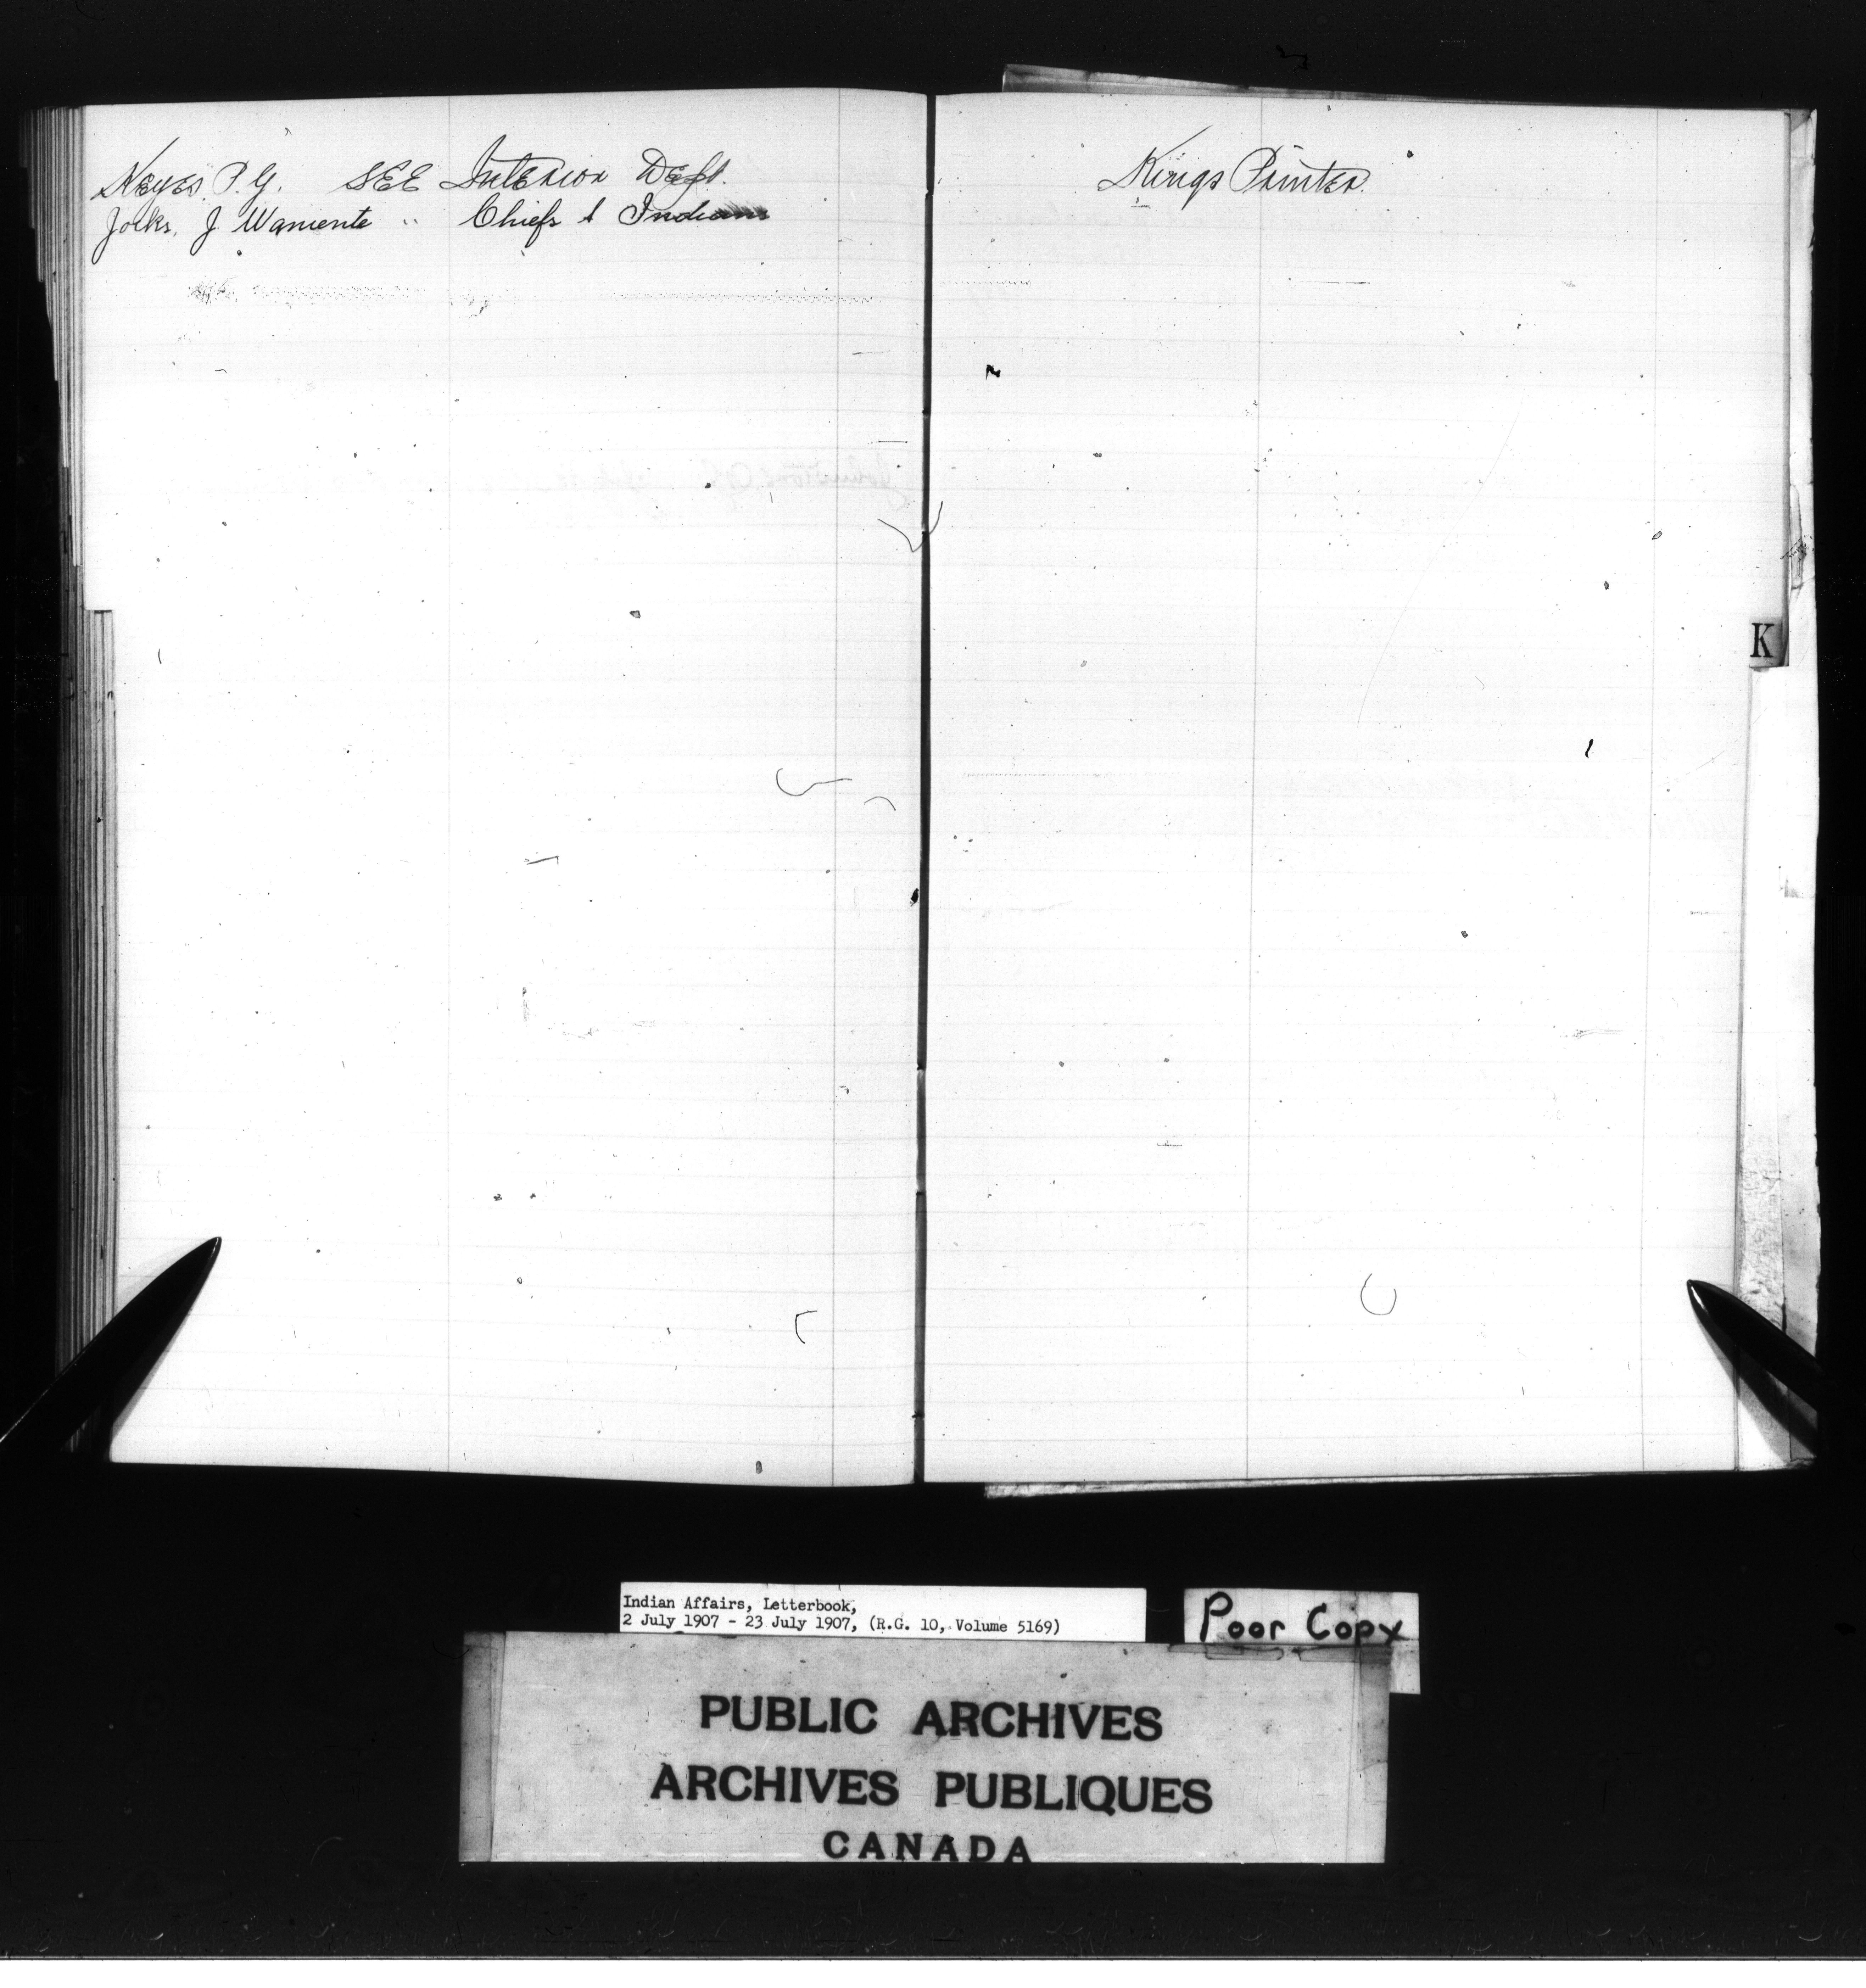 Keyes. P. G. SEE Interior Dept.
Jocks, J. Wamente " Chiefs & Indians
Kings Printer.
K
Indian Affairs, Letterbook,
2 July 1907 - 23 July 1907, (R.G. 10, Volume 5169)
Poor Copy
PUBLIC ARCHIVES
ARCHIVES PUBLIQUES
CANADA